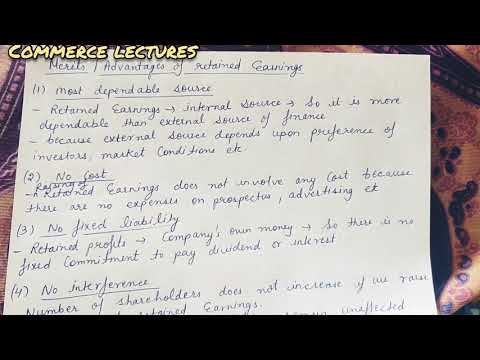 COMMERCE LECTURES
Merits / Advantages of retained Earnings
(1) most dependable source
- Retained Earnings → internal source → So it is more
dependable than external source of finance
- because external source depends upon preference of
investors, market Conditions etc
(2) No Cost
Raising of
- Retained Earnings does not involve any Cost because
there are no expenses on prospectus, advertising et
(3) No fixed liability
- Retained profits → Company's own money → So there is no
fixed Commitment to pay dividend or interest
(4) No interference
Number of shareholders does not increase if we raise
retained Earnings.
unaffected